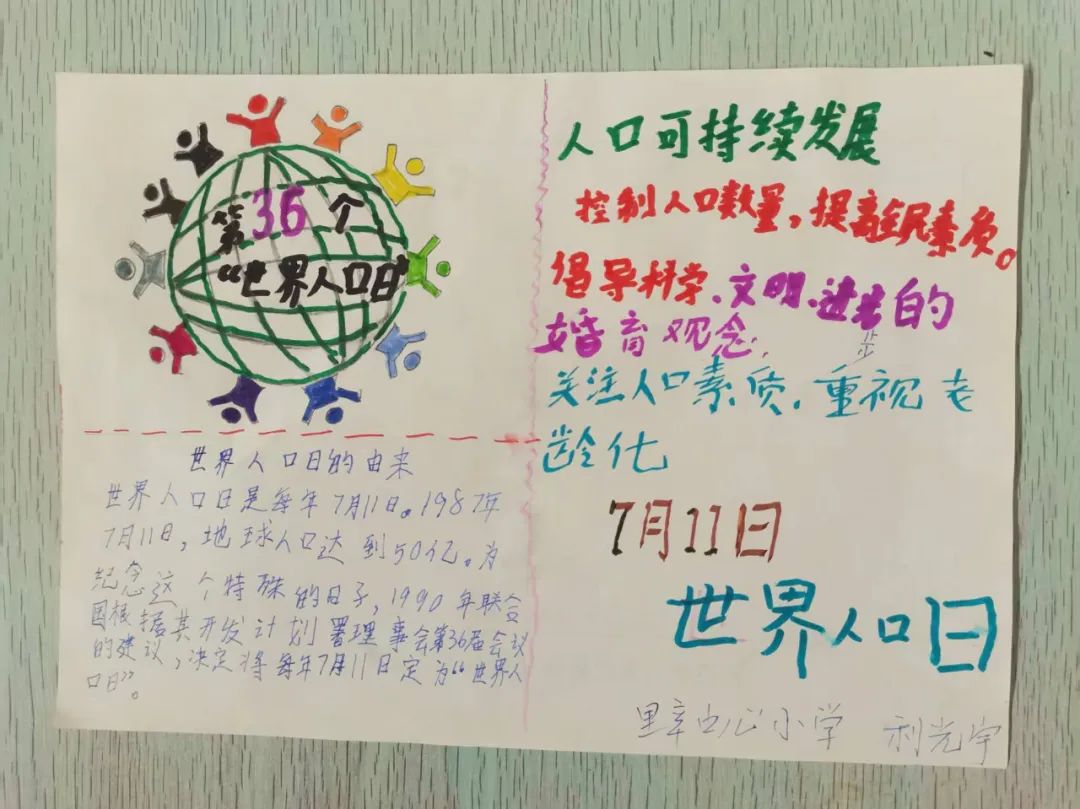 第36个
“世界人口日”
世界人口日的由来
世界人口日是每年7月11日。1987年
7月11日，地球人口达到50亿。为
纪念这个特殊的日子，1990年联合
国根据其开发计划署理事会第36届会议
的建议，决定将每年7月11日定为“世界人
口日”。
人口可持续发展
控制人口数量，提高全民素质。
倡导科学、文明、进步的
婚育观念.
关注人口素质.重视老
龄化
7月11日
世界人口日
里辛中心小学 利光宇